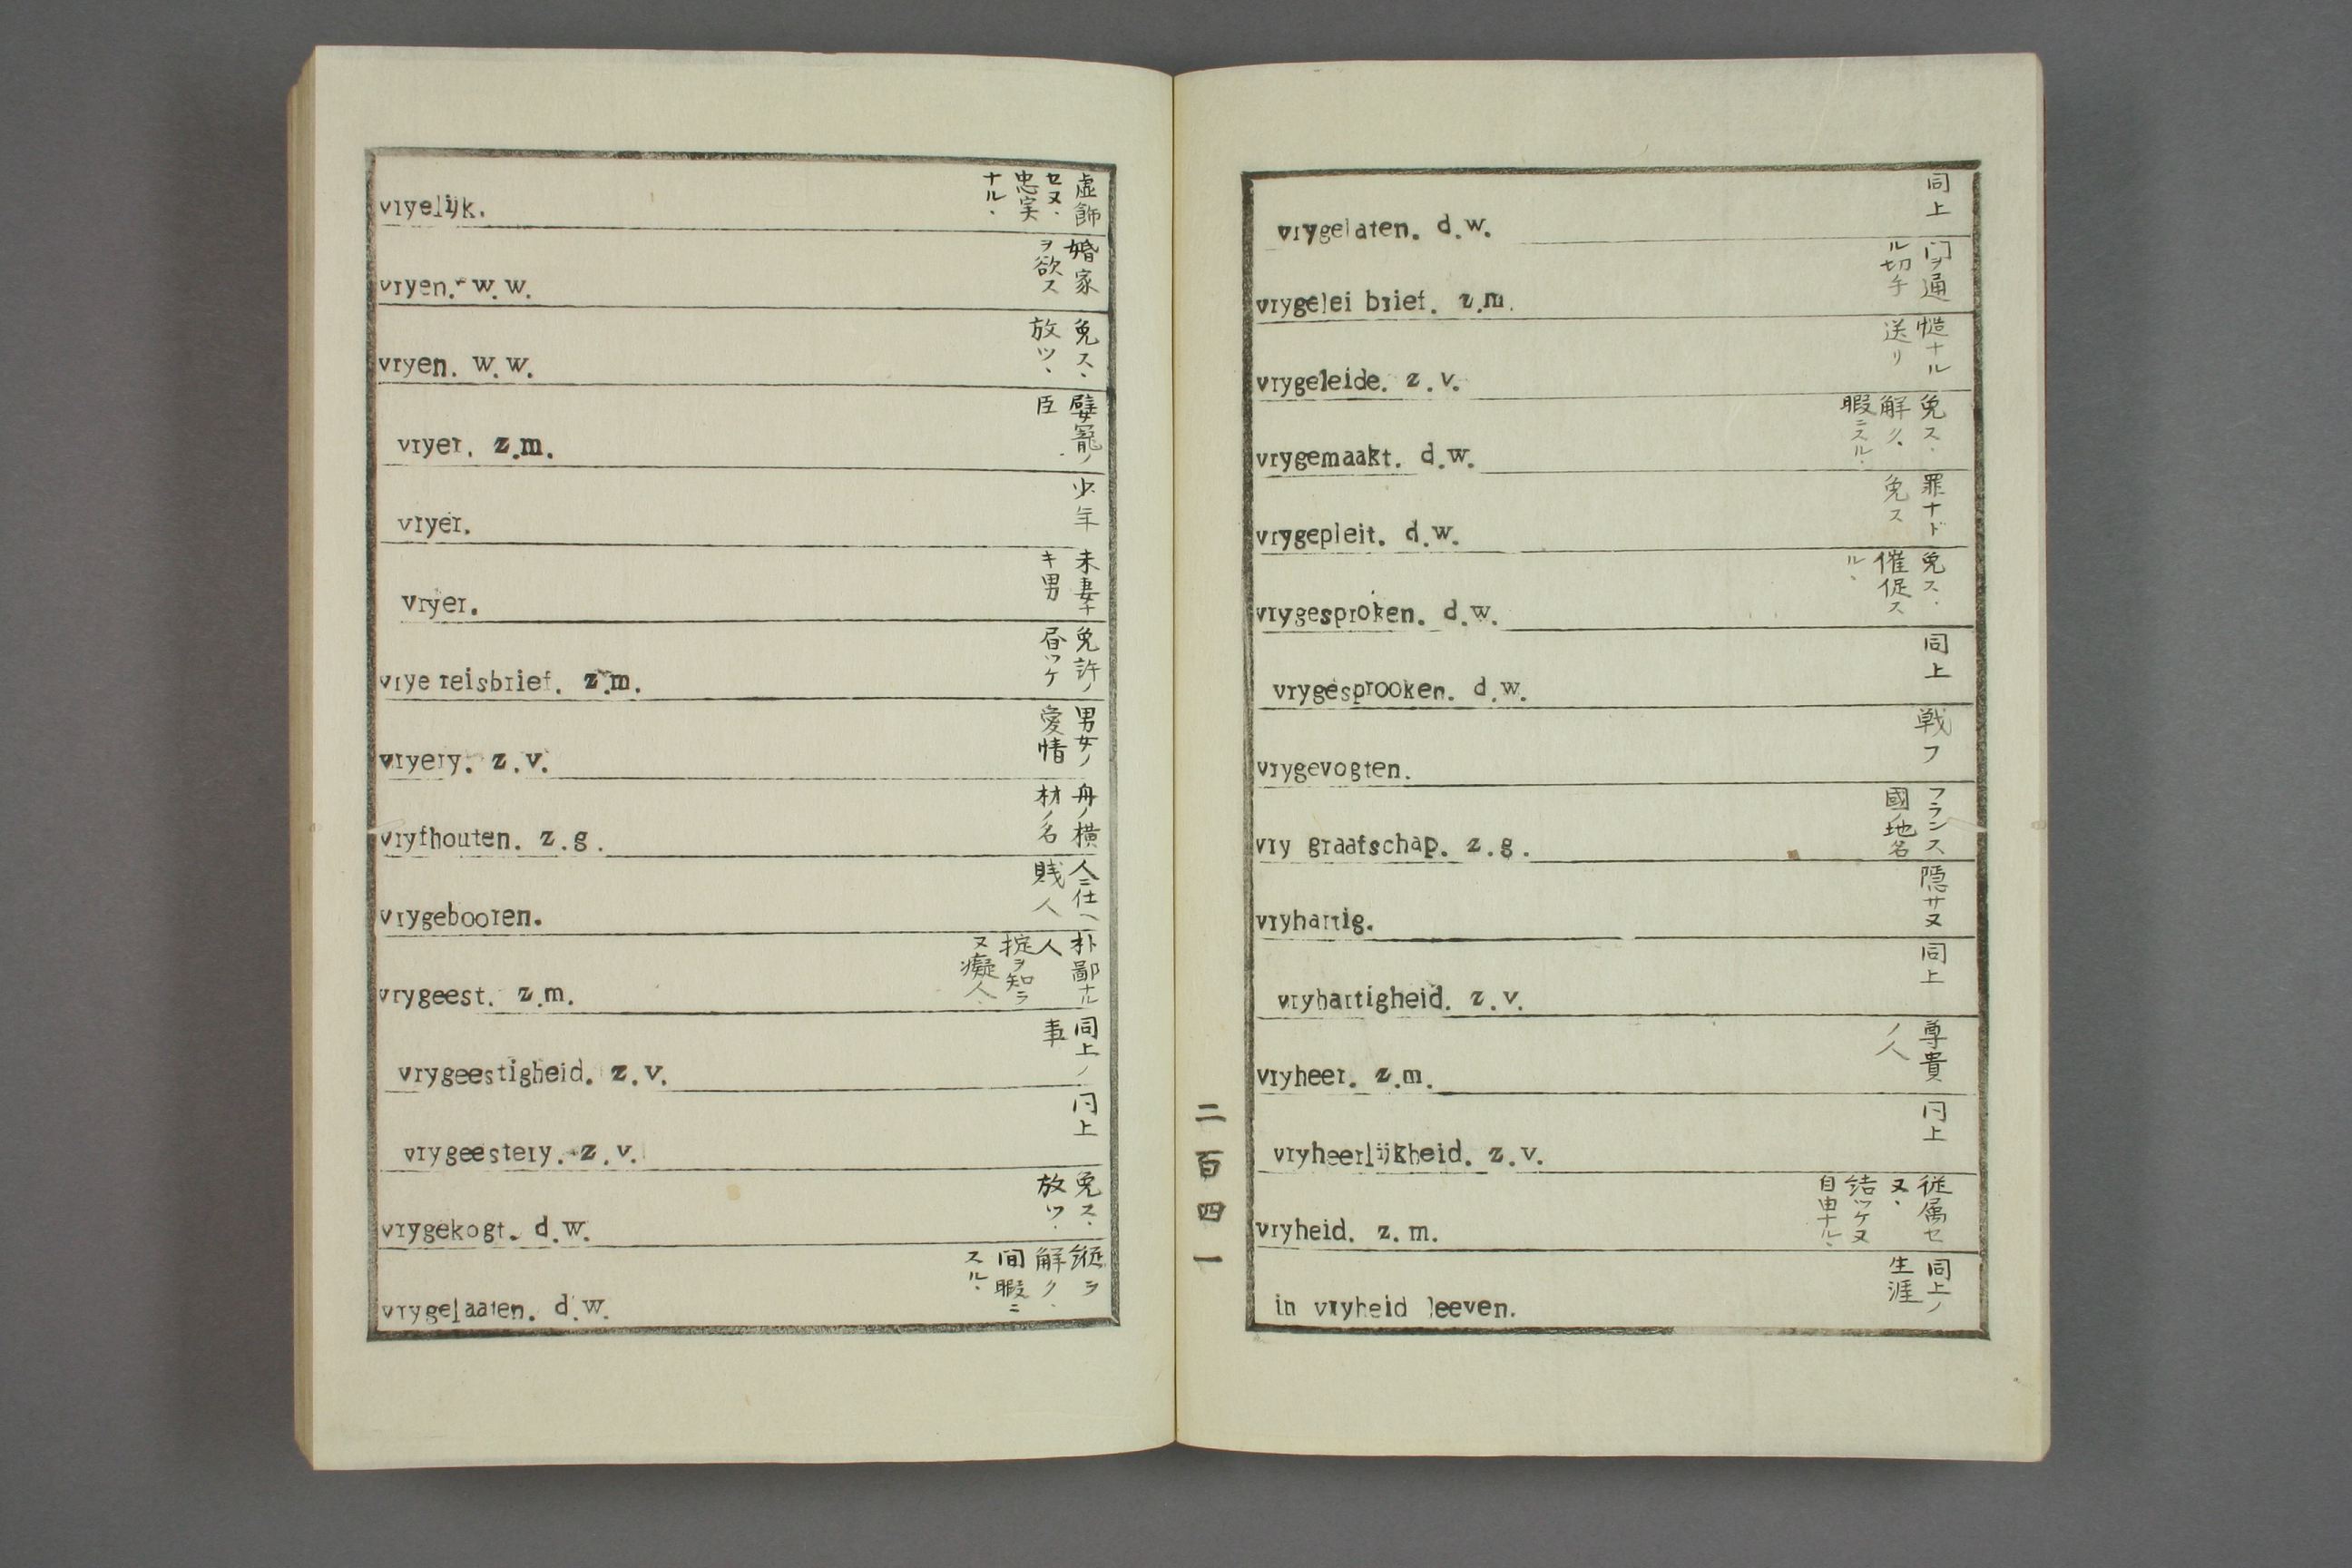 vryelijk.
虚飾
セヌ、
忠実
ナル、
vryen. w.w.
婚家
ヲ欲ス
vryen. w.w.
免ス、
放ツ、
vryer. z.m.
嬖寵ノ
臣
vryer.
少年
vryer.
未妻ナ
キ男
vrye reisbrief. z.m.
免許ノ
昏ツケ
vryery. z.v.
男女ノ
愛情
vryfhouten. z.g.
舟ノ横
材ノ名
vrygebooren.
人ニ仕ヘ
賎人
vrygeest. z.m.
朴鄙ナル
人
掟ヲ知ラ
ヌ癡人
vrygeestigheid. z.v.
同上ノ
事
vrygeestery. z.v.
同上
vrygekogt. d.w.
免ス、
放ツ、
vrygelaaten. d.w.
縦ラ
解ク、
間暇ニ
スル、
vrygelaten. d.w.
同上
vrygelei brief. z.m.
门ヲ通
ル切手
vrygeleide. z.v.
慥ナル
送リ
vrygemaakt. d.w.
免ス、
解ク、
暇ニスル、
vrygepleit. d.w.
罪ナド
免ス
vrygesproken. d.w.
免ス、
催促ス
ル、
vrygesprooken. d.w.
同上
vrygevogten.
戦フ
vry graafschap. z.g.
フランス
國ノ地名
vryhartig.
隠サヌ
vryhartigheid. z.v.
同上
vryheer. z.m.
尊貴
ノ人
vryheerlijkheid. z.v.
同上
vryheid. z.m.
従属セ
ヌ、
结ツケヌ
自由ナル、
in vryheid leeven.
同上ノ
生涯
二百四一